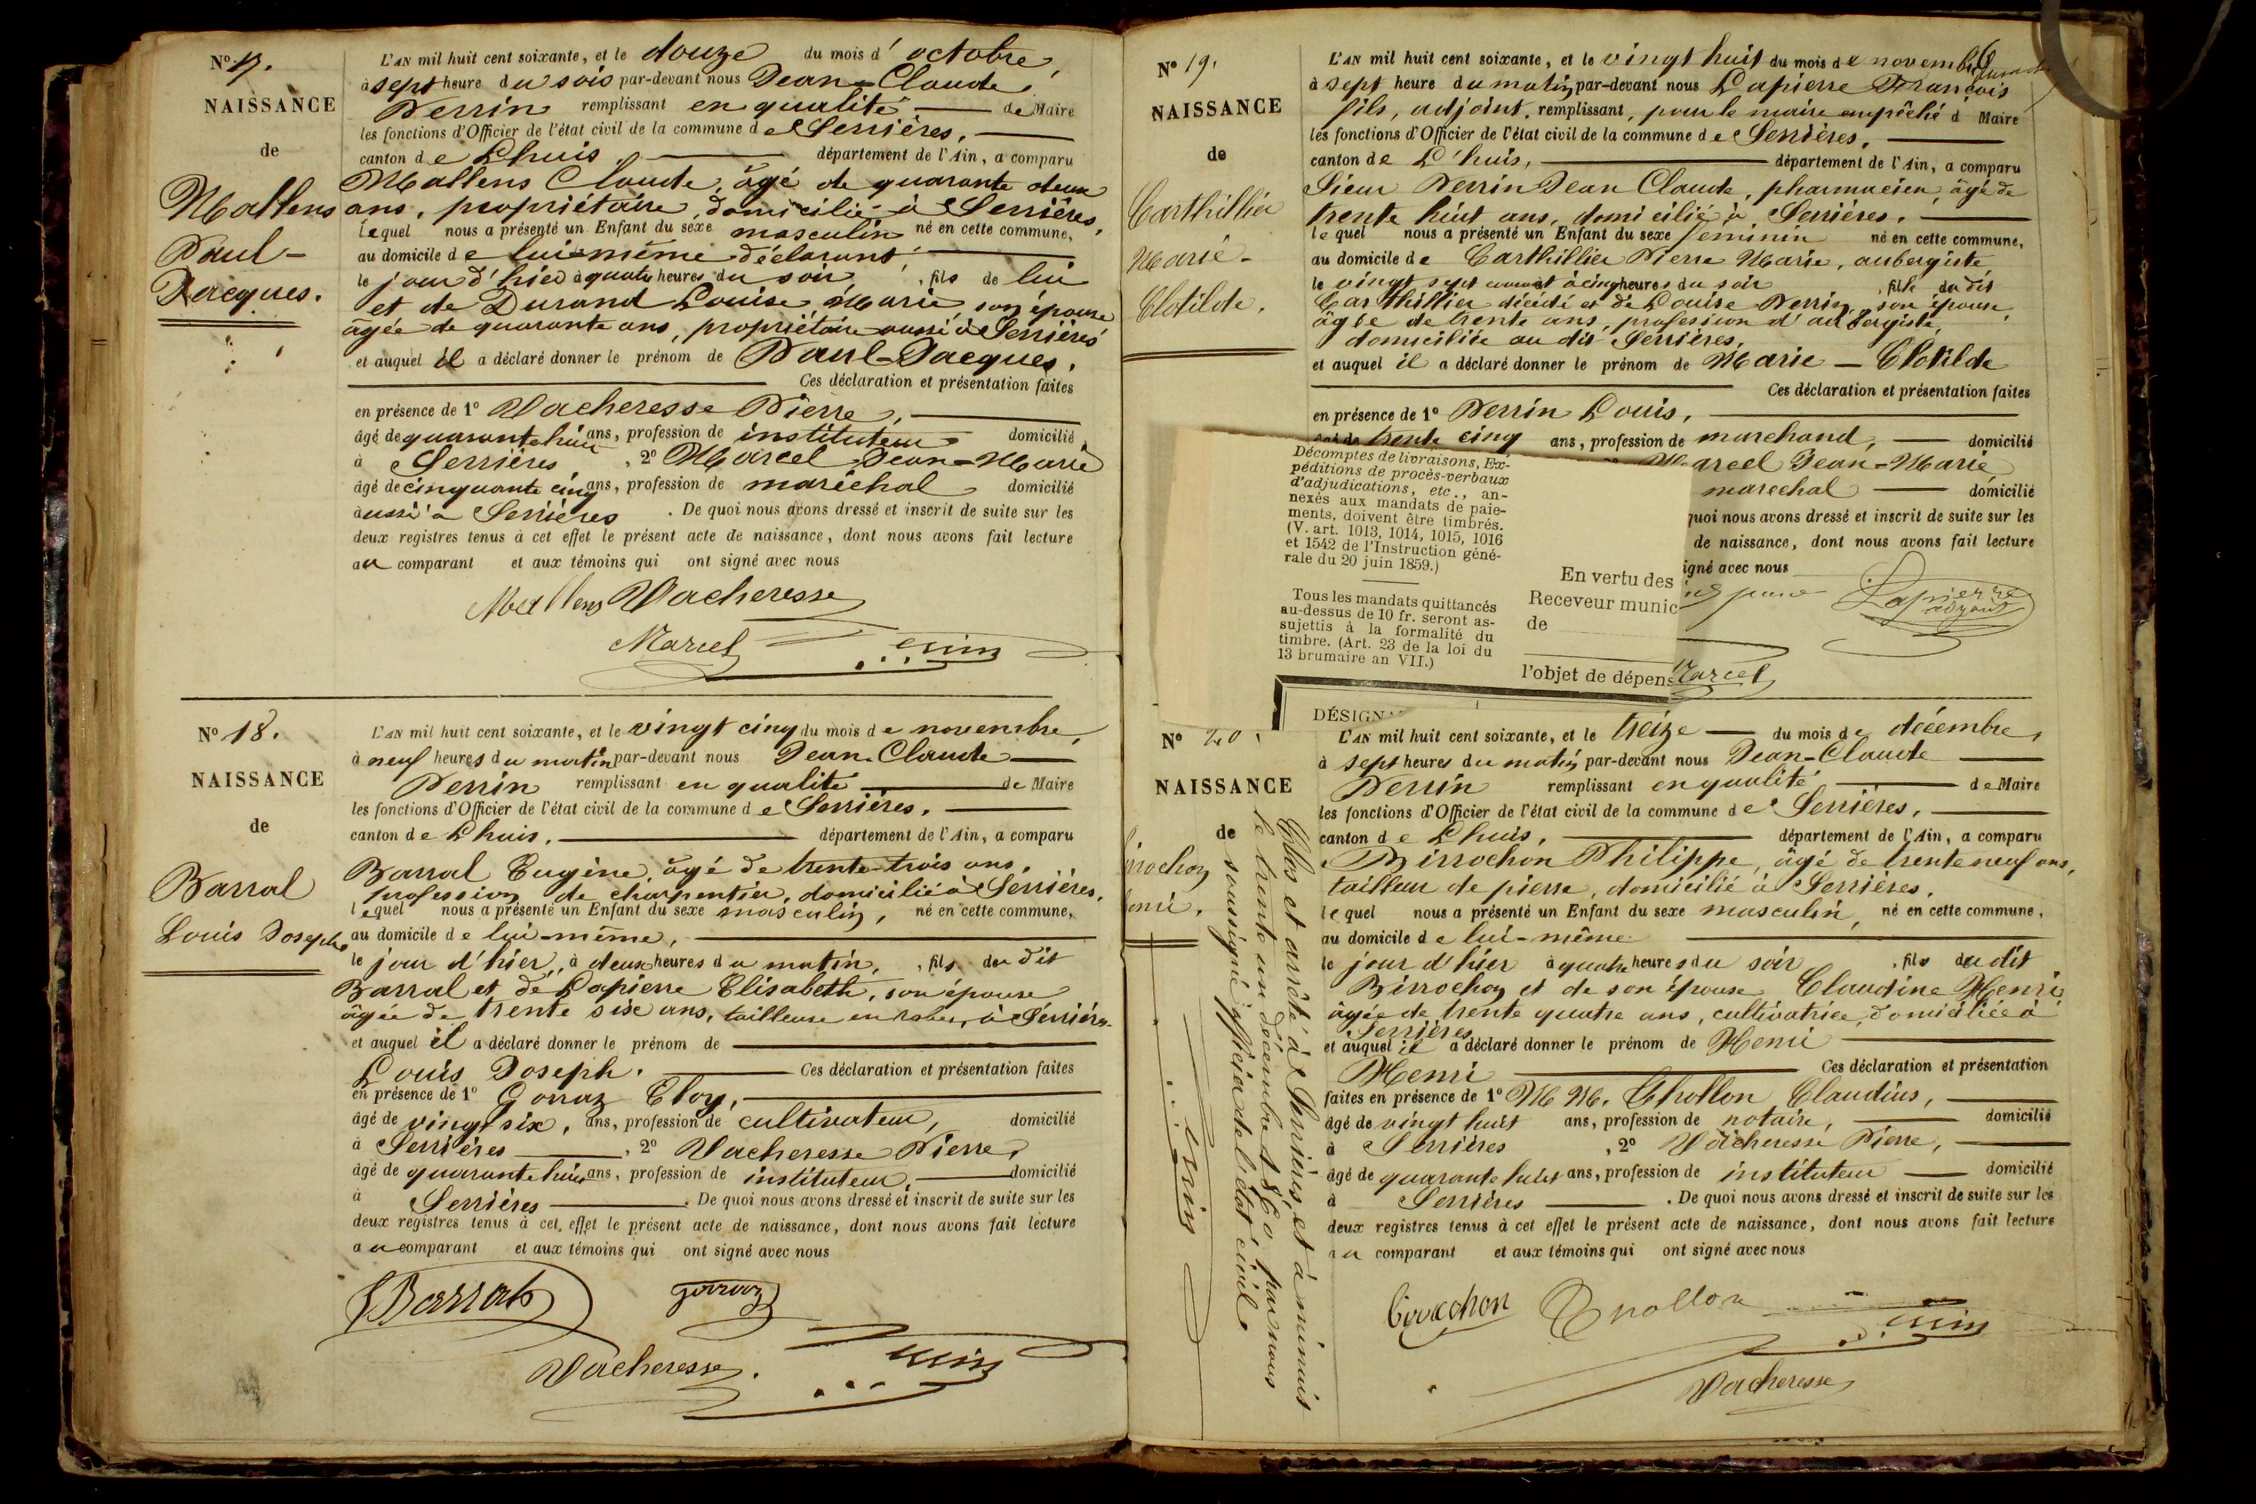 N° 17.
NAISSANCE
de
Mallens
Paul-
Jacques.
L'AN mil huit cent soixante, et le douze du mois d'octobre,
à sept heure du soir par-devant nous Jean-Claude
Perrin remplissant en qualité de Maire
les fonctions d'Officier de l'état civil de la commune de Serrières,
canton de Lhuis, département de l'Ain, a comparu
Mallens Claude, âgé de quarante deux
ans, propriétaire, domicilié à Serrières,
lequel nous a présenté un Enfant du sexe masculin né en cette commune,
au domicile de lui-même déclarant
le jour d'hier à quatre heures du soir, fils de lui
et de Durand Louise Marie, son épouse
âgée de quarante ans, propriétaire aussi à Serrières
et auquel il a déclaré donner le prénom de Paul-Jacques.
Ces déclaration et présentation faites
en présence de 1° Vacheresse Pierre,
âgé de quarante huit ans, profession de instituteur domicilié
à Serrières, 2° Marcel Jean-Marie
âgé de cinquante cinq ans, profession de maréchal domicilié
aussi à Serrières. De quoi nous avons dressé et inscrit de suite sur les
deux registres tenus à cet effet le présent acte de naissance, dont nous avons fait lecture
au comparant et aux témoins qui ont signé avec nous
Mallens Vacheresse
Marcel
N° 18.
NAISSANCE
de
Barral
Louis Joseph
L'AN mil huit cent soixante, et le vingt cinq du mois de novembre,
à neuf heures du matin par-devant nous Jean-Claude
Perrin remplissant en qualité de Maire
les fonctions d'Officier de l'état civil de la commune de Serrières,
canton de Lhuis, département de l'Ain, a comparu
Barral Eugène, âgé de trente-trois ans,
profession de charpentier, domicilié à Serrières,
lequel nous a présenté un Enfant du sexe masculin, né en cette commune,
au domicile de lui-même,
le jour d'hier, à deux heures du matin, fils du dit
Barral et de Lapierre Elisabeth, son épouse
âgée de trente six ans, tailleuse en robes, à Serrières
et auquel il a déclaré donner le prénom de
Louis Joseph. Ces déclaration et présentation faites
en présence de 1° Gorraz Eloy,
âgé de vingt six, ans, profession de cultivateur, domicilié
à Serrières, 2° Vacheresse Pierre,
âgé de quarante huit ans, profession de instituteur, domicilié
à Serrières. De quoi nous avons dressé et inscrit de suite sur les
deux registres tenus à cet effet le présent acte de naissance, dont nous avons fait lecture
au comparant et aux témoins qui ont signé avec nous
Barral gorraz
Vacheresse
N° 19.
NAISSANCE
de
Carthillier
Marie-
Clotilde.
L'AN mil huit cent soixante, et le vingt huit du mois de novembre
à sept heure du matin par-devant nous Lapierre François
fils, adjoint, remplissant, pour le maire empêché d Maire
les fonctions d'Officier de l'état civil de la commune de Serrières,
canton de L'huis, département de l'Ain, a comparu
Sieur Perrin Jean Claude, pharmacien, âgé de
trente huit ans, domicilié à Serrières,
lequel nous a présenté un Enfant du sexe féminin né en cette commune,
au domicile de Carthillier Pierre Marie, aubergiste
le vingt sept courant à cinq heures du soir, fille du dit
Carthillier décédé et de Louise Perrin, son épouse,
âgée de trente ans, profession d'aubergiste,
domiciliée au dit Serrières,
et auquel il a déclaré donner le prénom de Marie - Clotilde
Ces déclaration et présentation faites
en présence de 1° Perrin Louis,
trente cinq ans, profession de marchand, domicilié
Marcel Jean-Marie
marechal domicilié
quoi nous avons dressé et inscrit de suite sur les
de naissance, dont nous avons fait lecture
igné avec nous
Lapierre
adjoint
Marcel
Décomptes de livraisons, Ex-
péditions de procès-verbaux
d'adjudications, etc., an-
nexés aux mandats de paie-
ments, doivent être timbrés.
(V. art. 1013, 1014, 1015, 1016
et 1542 de l'Instruction géné-
rale du 20 juin 1859.)
Tous les mandats quittancés
au-dessus de 10 fr. seront as-
sujettis à la formalité du
timbre. (Art. 23 de la loi du
13 brumaire an VII.)
En vertu des
Receveur munic
de
l'objet de dépens
DÉSIGN
N° 20.
NAISSANCE
de
irrochon
enri.
L'AN mil huit cent soixante, et le treize du mois de décembre,
à sept heures du matin par-devant nous Jean-Claude
Perrin remplissant en qualité de Maire
les fonctions d'Officier de l'état civil de la commune de Serrières,
canton de Lhuis, département de l'Ain, a comparu
Birrochon Philippe, âgé de trente neuf ans,
tailleur de pierre, domicilié à Serrières,
lequel nous a présenté un Enfant du sexe masculin, né en cette commune,
au domicile de lui-même
le jour d'hier à quatre heures du soir, fils du dit
Birrochon et de son épouse Claudine Henri
âgée de trente quatre ans, cultivatrice, domiciliée à
Serrières
et auquel il a déclaré donner le prénom de Henri
Henri Ces déclaration et présentation
faites en présence de 1° M M. Chollon Claudius,
âgé de vingt huit ans, profession de notaire, domicilié
à Serrières, 2° Vacheresse Pierre,
âgé de quarante huit ans, profession de instituteur domicilié
à Serrières. De quoi nous avons dressé et inscrit de suite sur les
deux registres tenus à cet effet le présent acte de naissance, dont nous avons fait lecture
au comparant et aux témoins qui ont signé avec nous
Vacheresse
Clos et arrêté à Serrières, et à minuit
le trente un décembre 1860, par nous
soussigné officier de l'état civil.